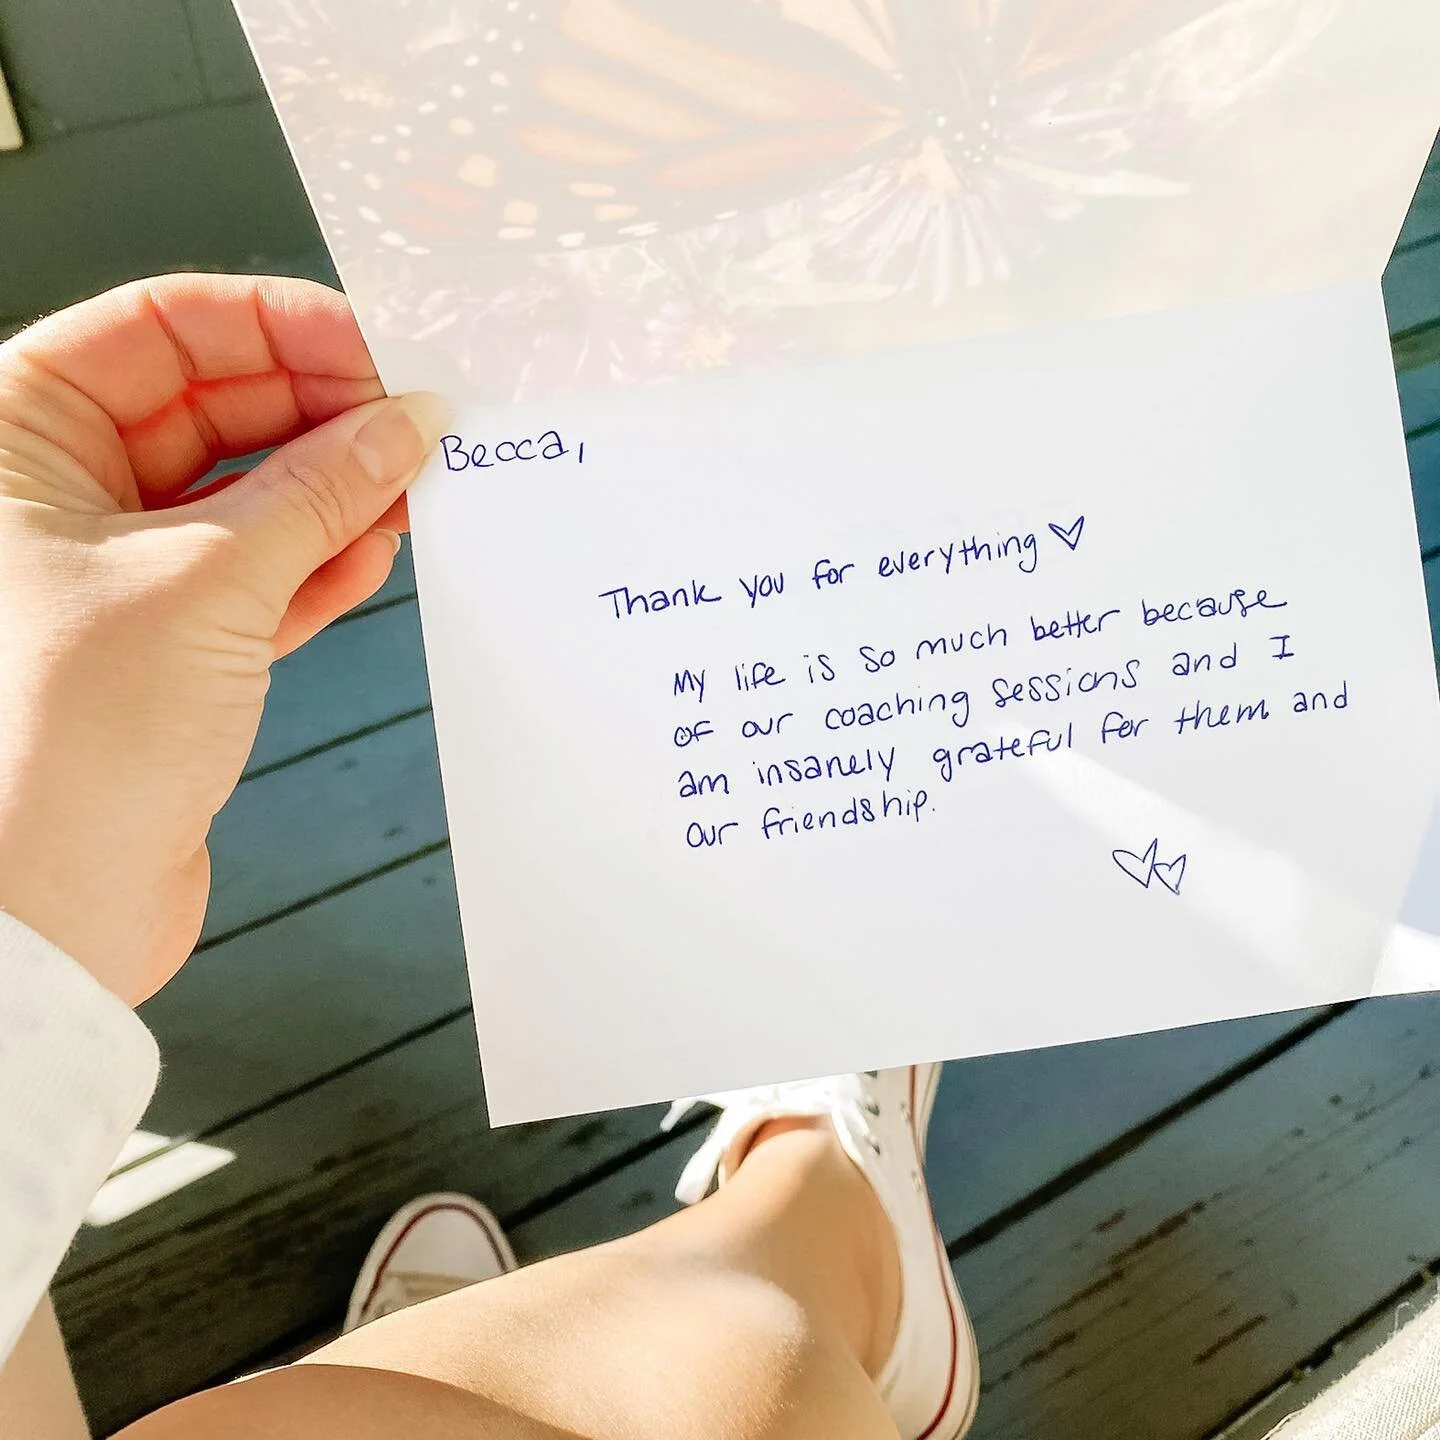 Becca,
Thank you for everything ♡
My life is so much better because
of our coaching sessions and I
am insanely grateful for them and
our friendship.